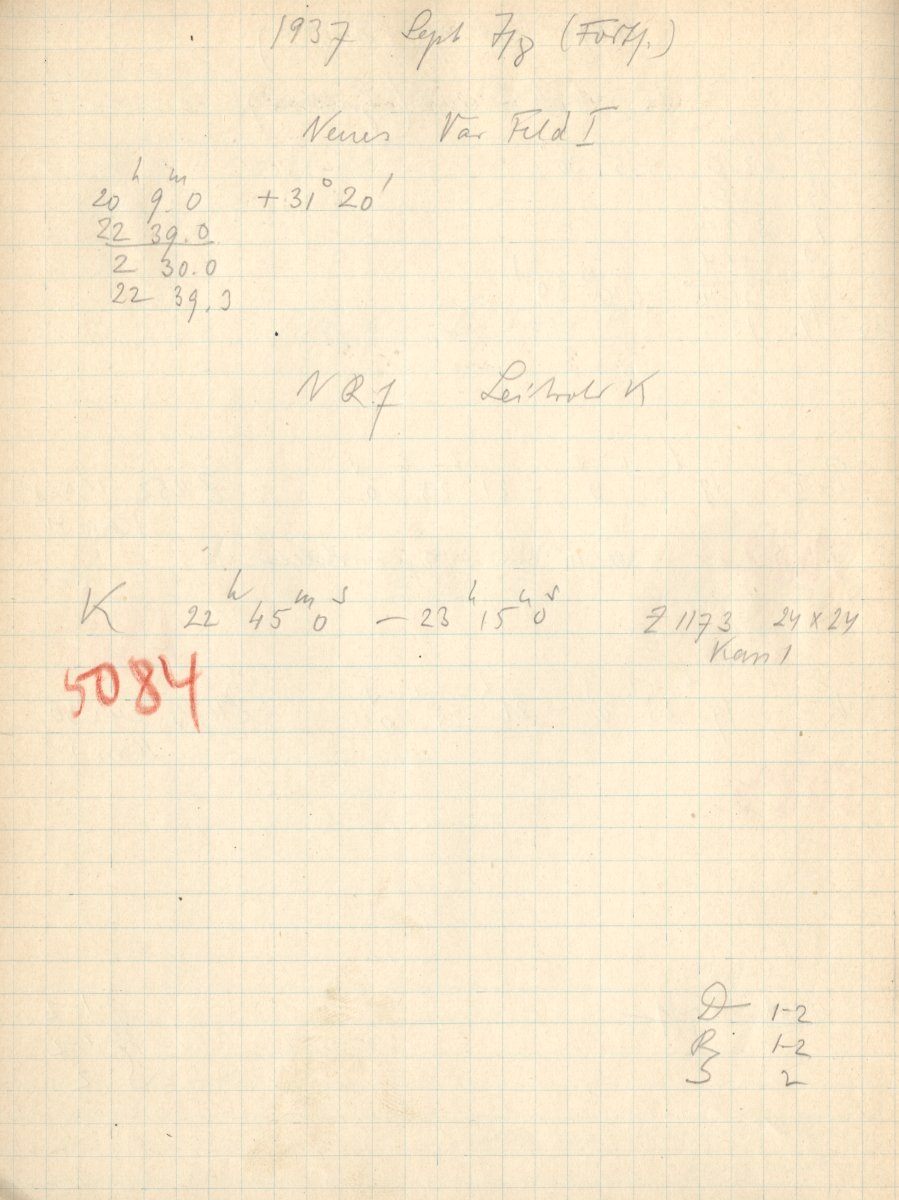 1937 Sept 7/8 (Forts.)
Neues Var Feld I
20ʰ 9ᵐ.0 +31° 20'
22 39.0
2 30.0
22 39.3
K
K 22ʰ 45ᵐ 0ˢ – 23ʰ 15ᵐ 0ˢ Z 1173 24 x 24
Kass 1
5084
D 1-2
R 1-2
S 2